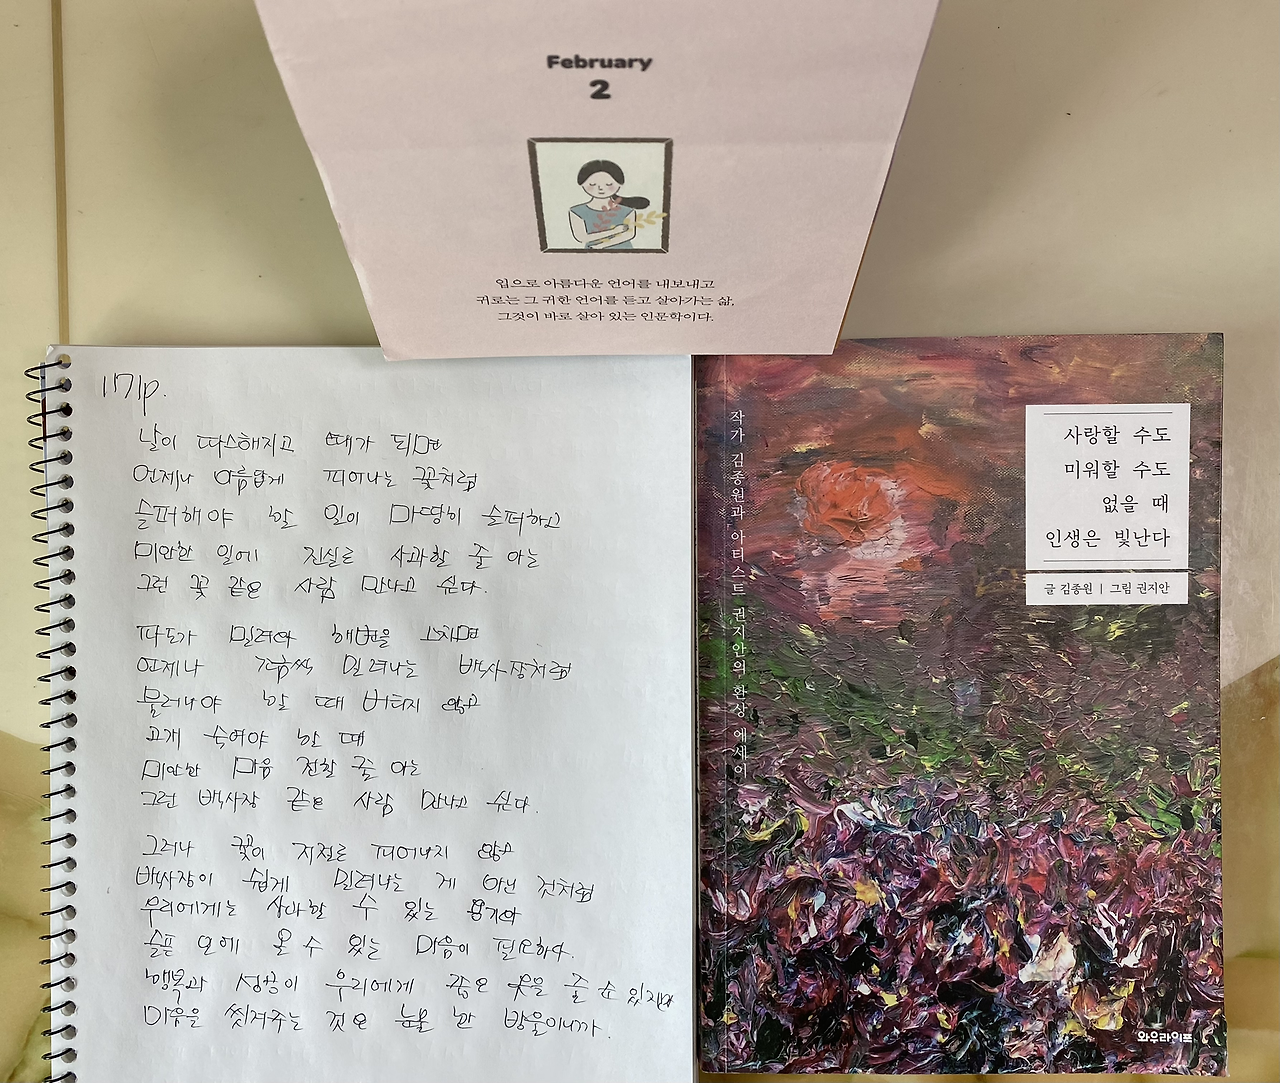 February
2
입으로 아름다운 언어를 내보내고
귀로는 그 귀한 언어를 듣고 살아가는 삶,
그것이 바로 살아 있는 인문학이다.
171p.
날이 따스해지고 때가 되면
언제나 아름답게 피어나는 꽃처럼
슬퍼해야 할 일이 마땅히 슬퍼하고
미안한 일에 진실로 사과할 줄 아는
그런 꽃 같은 사람 만나고 싶다.
파도가 밀려와 해변을 스치면
언제나 밀려나는 백사장처럼
물러나야 할 때 버티지 않고
고개 숙여야 할 때
미안한 마음 전할 줄 아는
그런 백사장 같은 사람 만나고 싶다.
그러나 꽃이 저절로 피어나지 않고
백사장이 쉽게 밀려나는 게 아닌 것처럼
우리에게는 사과할 수 있는 용기와
슬픔 앞에 울 수 있는 마음이 필요하다.
행복과 성공이 우리에게 좋은 옷을 줄 순 있지만
마음을 씻겨주는 것은 눈물 한 방울이니까.
작가 김종원과 아티스트 권지안의 환상 에세이
사랑할 수도
미워할 수도
없을 때
인생은 빛난다
글 김종원 | 그림 권지안
와우라이프